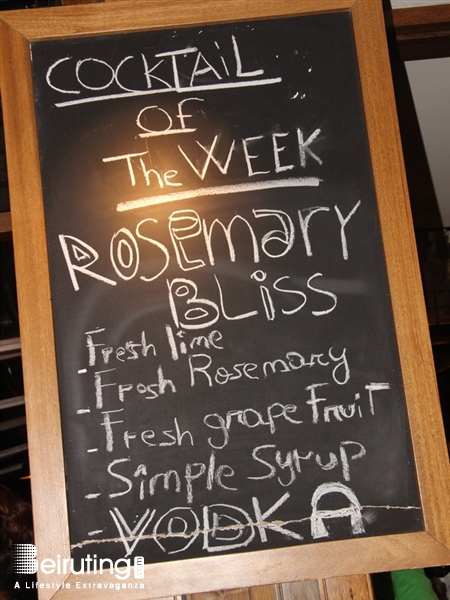 COCKTAiL
OF
The WEEK
ROSEmaRY
BLiSS
-Fresh lime
-Fresh Rosemary
-Fresh grapeFruiT
-Simple Syrup
-VODKA
Beiruting
A Lifestyle Extravaganza